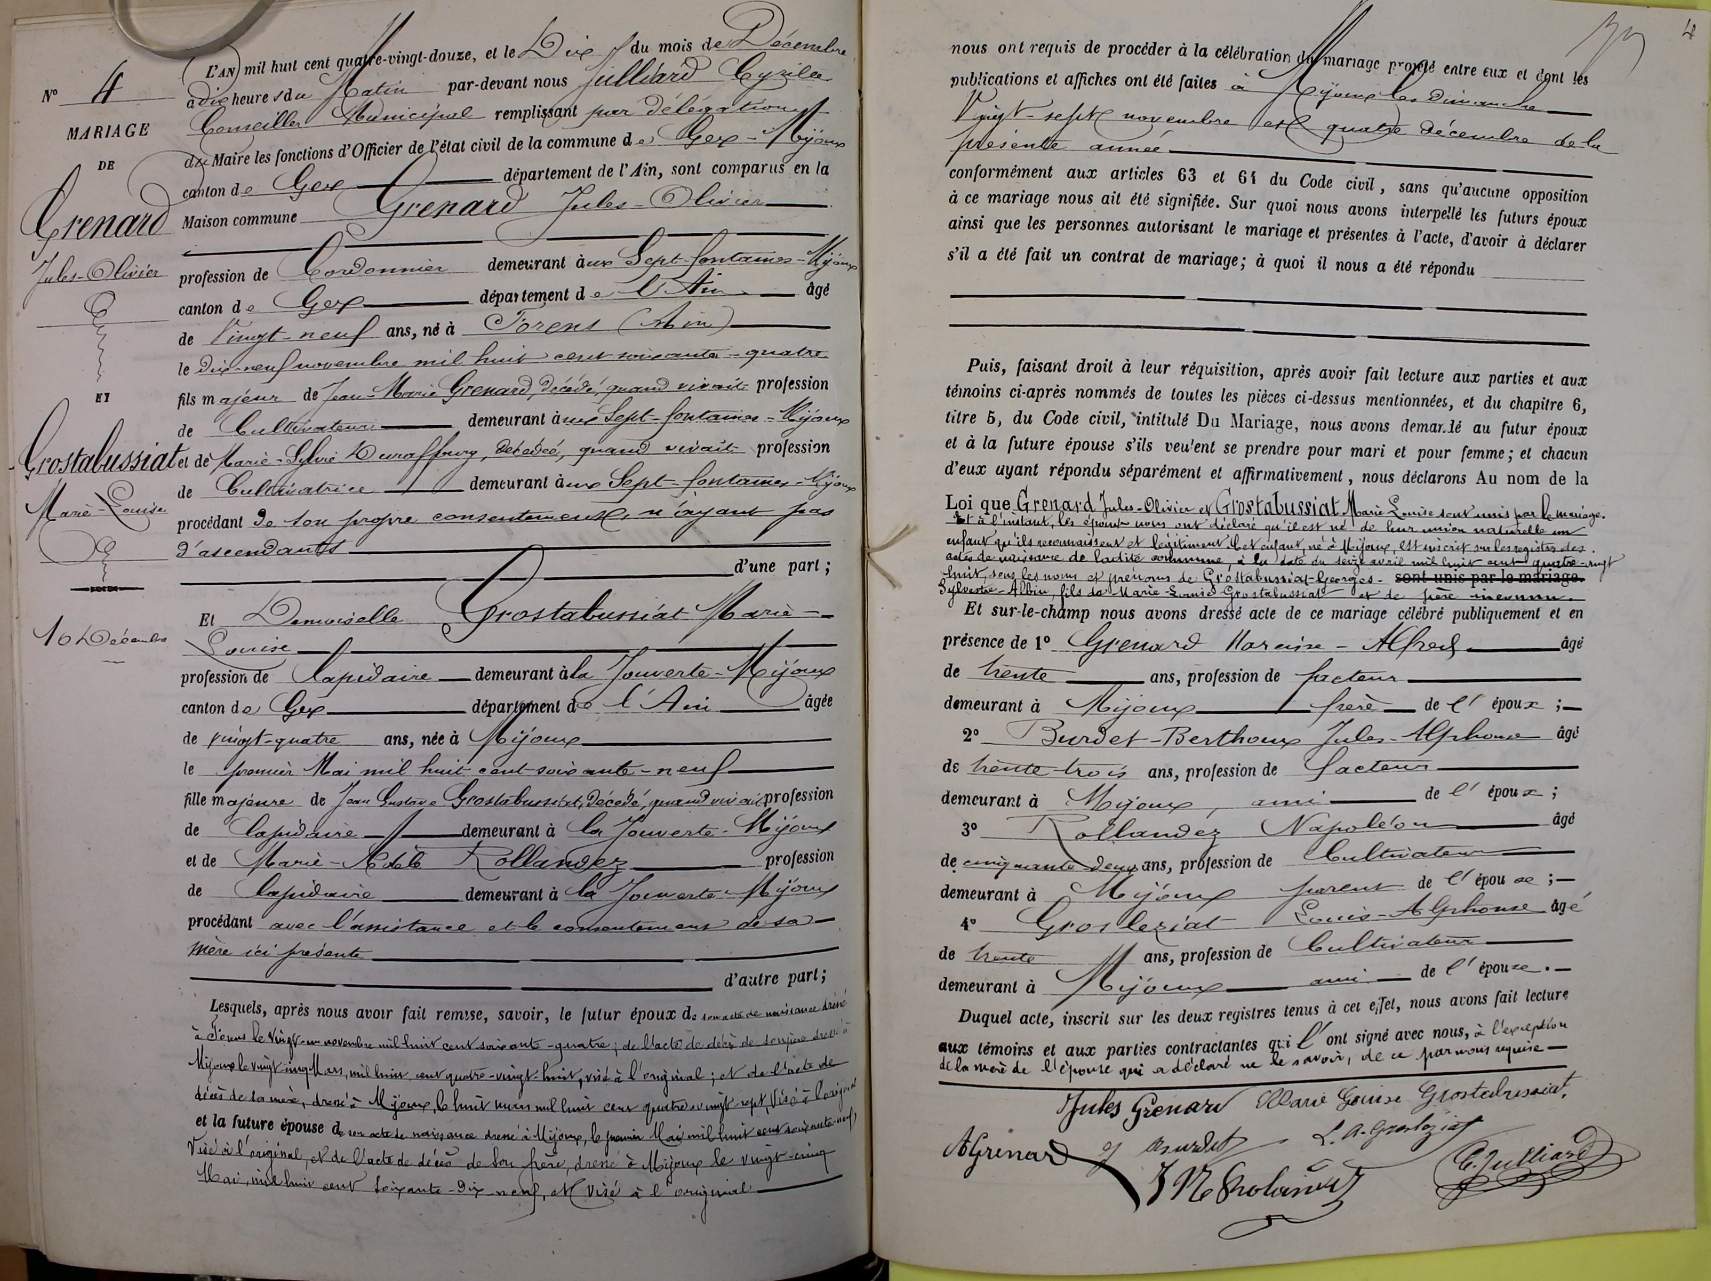 L'AN mil huit cent quatre-vingt-douze, et le Dix du mois de Décembre
N° 4
à dix heures du Matin par-devant nous Julliard Cyrille
Conseiller Municipal remplissant par délégation
MARIAGE
du Maire les fonctions d'Officier de l'état civil de la commune de Gex-Mijoux
DE
canton de Gex département de l'Ain, sont comparus en la
Grenard
Maison commune Grenard Jules-Olivier
Jules-Olivier
profession de Cordonnier demeurant aux Sept-fontaines-Mijoux
canton de Gex département de l'Ain âgé
de vingt-neuf ans, né à Forens (Ain)
le dix-neuf novembre mil huit cent soixante-quatre
ET
fils majeur de Jean-Marie Grenard, décédé, quand vivait profession
de Cultivateur demeurant aux Sept-fontaines-Mijoux
Grostabussiat
et de Marie-Sylvie Duraffourg, décédée, quand vivait profession
de Cultivatrice demeurant aux Sept-fontaines-Mijoux
Marie-Louise
procédant de son propre consentement, n'ayant pas
d'ascendants
d'une part;
10 Décembre
Et Demoiselle Grostabussiat Marie-
Louise
profession de lapidaire demeurant à la Jouverte-Mijoux
canton de Gex département de l'Ain âgée
de vingt-quatre ans, née à Mijoux
le premier Mai mil huit cent soixante-neuf
fille majeure de Jean Gustave Grostabussiat, décédé, quand vivait profession
de lapidaire demeurant à la Jouverte-Mijoux
et de Marie-Adèle Rollandez profession
de lapidaire demeurant à la Jouverte-Mijoux
procédant avec l'assistance et le consentement de sa
mère ici présente
d'autre part;
Lesquels, après nous avoir fait remise, savoir, le futur époux de son acte de naissance dressé
à Forens le vingt-un novembre mil huit cent soixante-quatre; de l'acte de décès de son père dressé à
Mijoux le vingt cinq Mars, mil huit cent quatre-vingt huit, visé à l'original; et de l'acte de
décès de sa mère, dressé à Mijoux, le huit mars mil huit cent quatre vingt sept, visé à l'original
et la future épouse de son acte de naissance dressé à Mijoux, le premier Mai mil huit cent soixante-neuf,
Visé à l'original, et de l'acte de décès de son père, dressé à Mijoux le vingt-cinq
Mai, mil huit cent soixante-dix-neuf, et visé à l'original
4
nous ont requis de procéder à la célébration du mariage projeté entre eux et dont les
publications et affiches ont été faites à Mijoux les dimanche
vingt-sept novembre et quatre décembre de la
présente année
conformément aux articles 63 et 64 du Code civil, sans qu'aucune opposition
à ce mariage nous ait été signifiée. Sur quoi nous avons interpellé les futurs époux
ainsi que les personnes autorisant le mariage et présentes à l'acte, d'avoir à déclarer
s'il a été fait un contrat de mariage; à quoi il nous a été répondu
Puis, faisant droit à leur réquisition, après avoir fait lecture aux parties et aux
témoins ci-après nommés de toutes les pièces ci-dessus mentionnées, et du chapitre 6,
titre 5, du Code civil, intitulé Du Mariage, nous avons demandé au futur époux
et à la future épouse s'ils veulent se prendre pour mari et pour femme; et chacun
d'eux ayant répondu séparément et affirmativement, nous déclarons Au nom de la
Loi que Grenard Jules-Olivier et Grostabussiat Marie Louise sont unis par le mariage.
Et à l'instant, les époux nous ont déclaré qu'il est né de leur union naturelle un
enfant qu'ils reconnaissent et légitiment. Cet enfant, né à Mijoux, est inscrit sur les registres des
actes de naissance de ladite commune, à la date du seize avril mil huit cent quatre-vingt
huit, sous les noms et prénoms de Grostabussiat-Georges- sont unis par le mariage.
Sylvestre-Albin, fils de Marie-Louise Grostabussiat et de père inconnu.
Et sur-le-champ nous avons dressé acte de ce mariage célébré publiquement et en
présence de 1° Grenard Narcisse-Alfred âgé
de trente ans, profession de facteur
demeurant à Mijoux frère de l'époux;
2° Burdet-Berthoux Jules-Alphonse âgé
de trente-trois ans, profession de facteur
demeurant à Mijoux, ami de l'époux;
3° Rollandez Napoléon âgé
de cinquante deux ans, profession de Cultivateur
demeurant à Mijoux parent de l'épouse;
4° Grosleziat Louis-Alphonse âgé
de trente ans, profession de Cultivateur
demeurant à Mijoux ami de l'épouse.
Duquel acte, inscrit sur les deux registres tenus à cet effet, nous avons fait lecture
aux témoins et aux parties contractantes qui l'ont signé avec nous, à l'exception
de la mère de l'épouse qui a déclaré ne le savoir, de ce par nous requise
Jules Grenard Marie Louise Grostabussiat.
A Grenard J Burdet L. A. Grosléziat
J N Rolandez C. Julliard